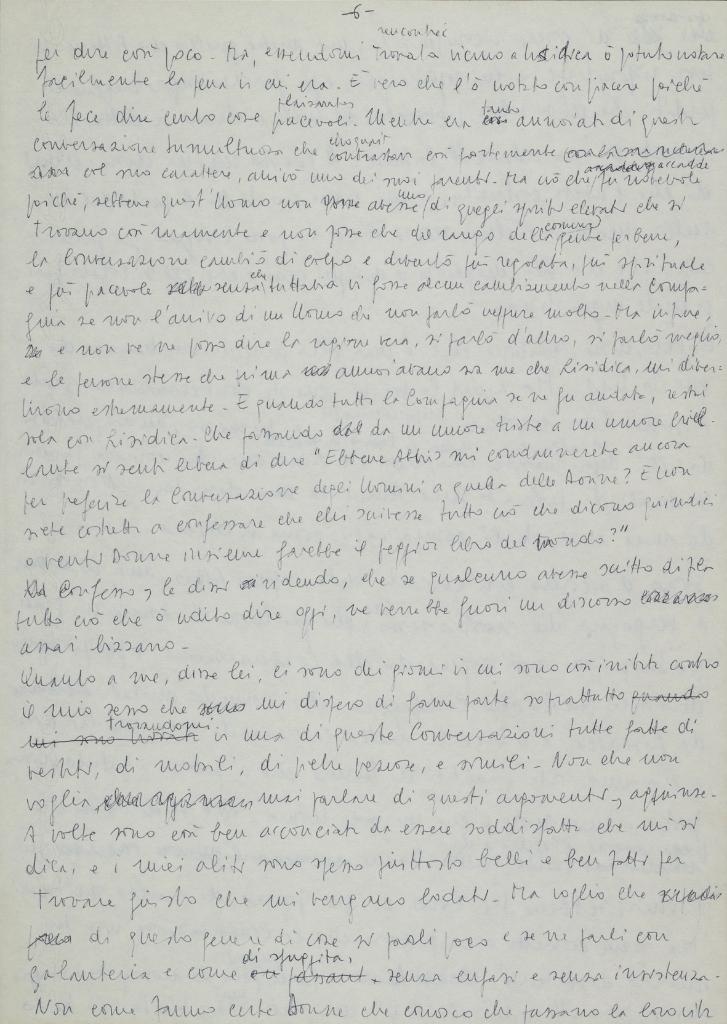 -6-
rencontrai
per dire così poco. Ma, essendomi trovata vicino a Lisidica ò potuto notare
facilmente la pena in cui era. È vero che l'ò notato con piacere poiché
le fece dire cento cose plaisantes piacevoli. Mentre era tanto annoiata di questa
conversazione tumultuosa che choquait contrastava così fortemente
col suo carattere, arrivò uno dei suoi parenti. Ma ciò che accadde fu notevole
poiché, sebbene quest'Uomo non avesse uno di quegli spiriti elevati che si
trovano così raramente e non fosse che del rango della comune gente perbene,
la conversazione cambiò di colpo e diventò più regolata, più spirituale
e più piacevole senza che tuttavia vi fosse alcun cambiamento nella Compa-
gnia se non l'arrivo di un Uomo che non parlò neppure molto. Ma infine,
e non ve ne posso dire la ragione vera, si parlò d'altro, si parlò meglio,
e le persone stesse che prima annoiavano sia me che Lisidica, mi diver-
tirono estremamente. E quando tutta la Compagnia se ne fu andata, restai
sola con Lisidica. Che passando da un umore triste a un umore bril-
lante si sentì libera di dire "Ebbene Atthis mi condannerete ancora
per preferire la Conversazione degli Uomini a quella delle Donne? E non
siete costretta a confessare che chi scrivesse tutto ciò che dicono quindici
o venti Donne insieme farebbe il peggior libro del mondo?"
Confesso, le dissi ridendo, che se qualcuno avesse scritto di fila
tutto ciò che ò udito dire oggi, ne verrebbe fuori un discorso
assai bizzarro.
Quanto a me, disse lei, ci sono dei giorni in cui sono così irritata contro
il mio sesso che mi dispero di farne parte soprattutto quando
mi sono trovata trovandomi in una di queste Conversazioni tutte fatte di
vestiti, di mobili, di pietre preziose, e simili. Non che non
voglia mai parlare di questi argomenti, aggiunse.
A volte sono così ben acconciata da essere soddisfatta che mi si
dica, e i miei abiti sono spesso piuttosto belli e ben fatti per
trovare giusto che mi vengano lodati. Ma voglio che
di questo genere di cose si parli poco e se ne parli con
galanteria e come en passant di sfuggita, senza enfasi e senza insistenza.
Non come fanno certe Donne che conosco che passano la loro vita